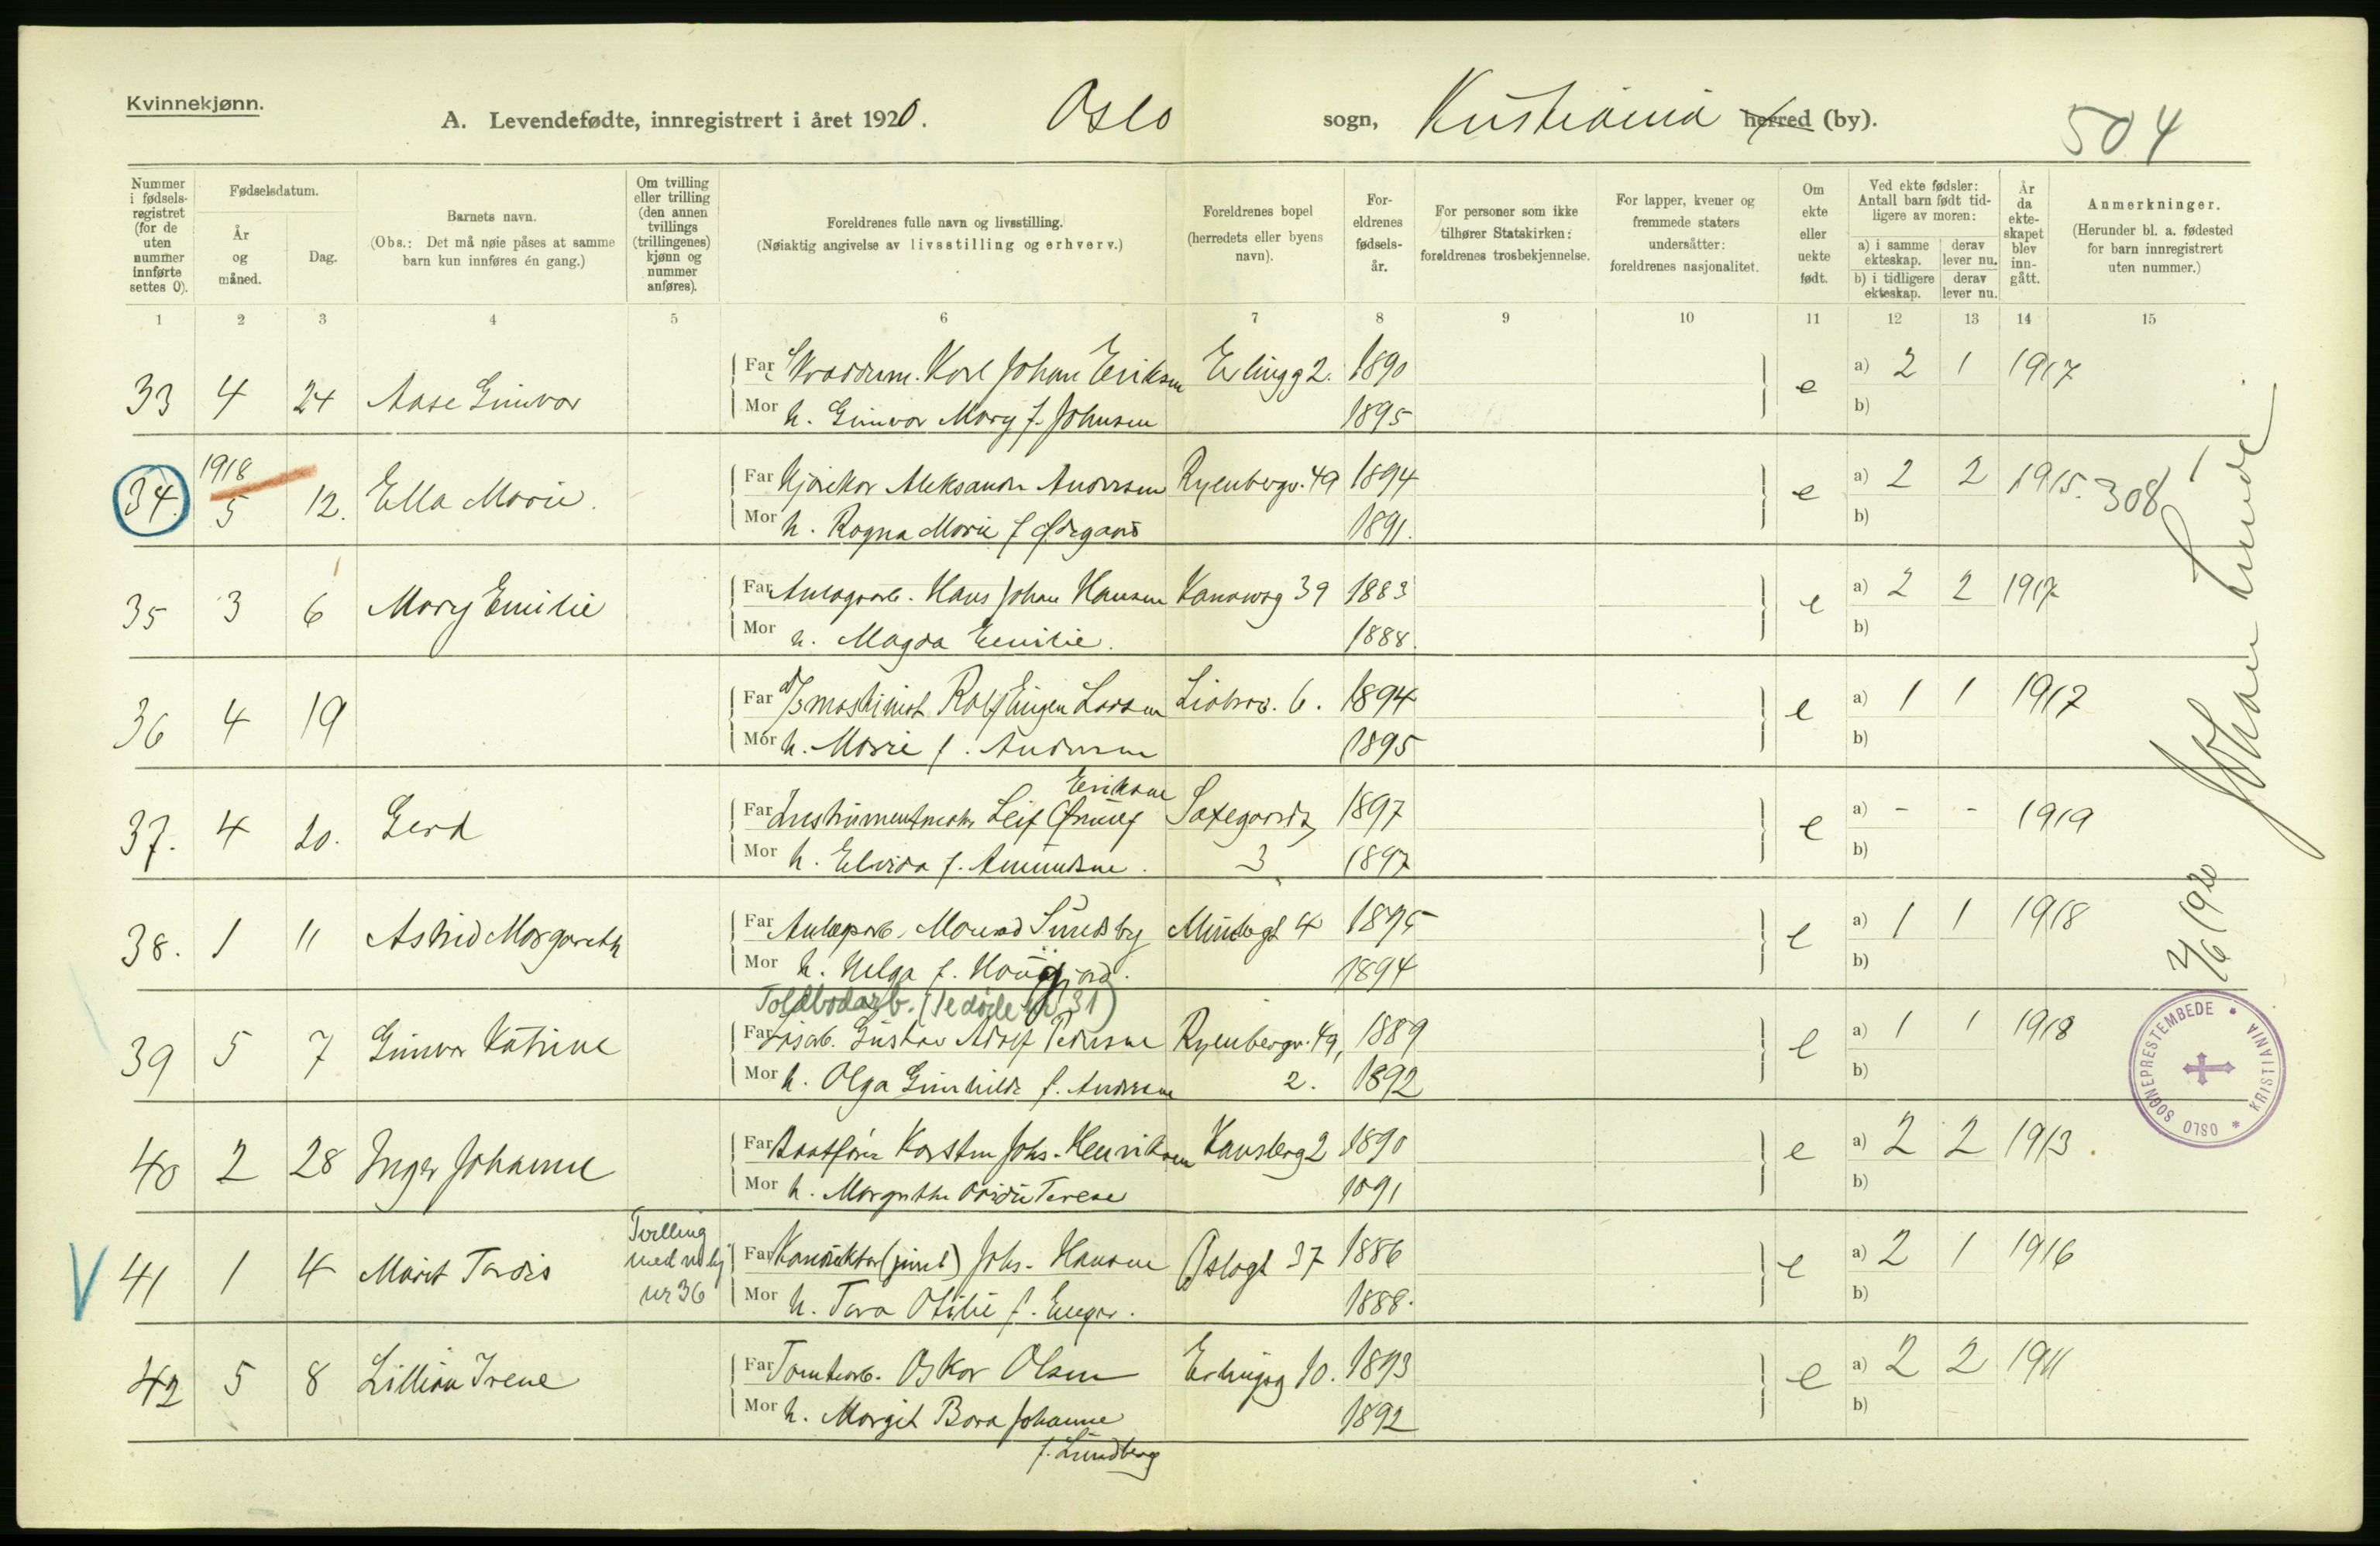 Kvinnekjønn.
A. Levendefødte, innregistrert i året 1920. Oslo sogn, Kristiania herred (by). 504
Nummer i fødselsregistret (for de uten nummer innførte settes 0).
Fødselsdatum.
År og måned.
Dag.
Barnets navn.
(Obs.: Det må nøie påses at samme barn kun innføres én gang.)
Om tvilling eller trilling (den annen tvillings (trillingenes) kjønn og nummer anføres).
Foreldrenes fulle navn og livsstilling.
(Nøiaktig angivelse av livsstilling og erhverv.)
Foreldrenes bopel (herredets eller byens navn).
Foreldrenes fødselsår.
For personer som ikke tilhører Statskirken: foreldrenes trosbekjennelse.
For lapper, kvener og fremmede staters undersåtter: foreldrenes nasjonalitet.
Om ekte eller uekte født.
Ved ekte fødsler: Antall barn født tidligere av moren:
a) i samme ekteskap. derav lever nu.
b) i tidligere ekteskap. derav lever nu.
År da ekteskapet blev inngått.
Anmerkninger.
(Herunder bl. a. fødested for barn innregistrert uten nummer.)
1 2 3 4 5 6 7 8 9 10 11 12 13 14 15
33 4 24 Aase Gunvor Far Karl Johan Eriksen Erlingg 2. 1890 e a) 2 1 1917
Mor h. Gunvor Mary f. Johnsen 1895 b)
34. 1918 5 12. Ella Marie. Far Kjørekar Aleksander Andersen Ryenbergv. 49 1894 e a) 2 2 1915. 308
Mor h. Ragna Marie f Ødegaard 1891. b)
35 3 6 Mary Emilie Far Anlægsarb. Hans Johan Hansen Kanaweg 39 1883 e a) 2 2 1917
Mor h. Magda Emilie. 1888. b)
36 4 19 Far d/s maskinist Rolf Eugen Larsen Liabrov. 6. 1894 e a) 1 1 1917
Mor h. Marie f. Andersen 1895 b)
Eriksen
37. 4 20. Gerd Far Instrumentmak. Leif Ørnulf Saxegaardsg 1897 e a) - - 1919
Mor h. Elvida f. Amundsen. 3 1897 b)
38. 1 11 Astrid Margareth Far Anlægsarb. Sundsby Minktgt 4 1895 e a) 1 1 1918
Mor h. Helga f. Haugjord. 1894 b)
Toldbodarb. (Se døde nr 31)
39 5 7 Gunvor Katrine Far Gustav Adolf Pedersen Ryenbergv. 49, 1889 e a) 1 1 1918
Mor h. Olga Gunhilde f. Andersen 2. 1892 b)
40 2 28 Inger Johanne Far Baatfører Karsten Johs. Henriksen Kanslerg 2 1890 e a) 2 2 1913.
Mor h. Margrethe Terese 1891 b)
41 1 4 Marit Tordis Tvilling med m.kj nr 36 Far Konduktør Johs. Hansen Oslogt 37 1886 e a) 2 1 1916
Mor h. Tora Otilie f. Enger. 1888. b)
42 5 8 Lillian Irene Far Tomtearb. Oskar Olsen Erlingsg 10. 1893 e a) 2 2 1911
Mor h. Margit Bora Johanne 1892 b)
f. Lundberg
2/6 1920 Johan Lunde
OSLO SOGNEPRESTEMBEDE • KRISTIANIA *